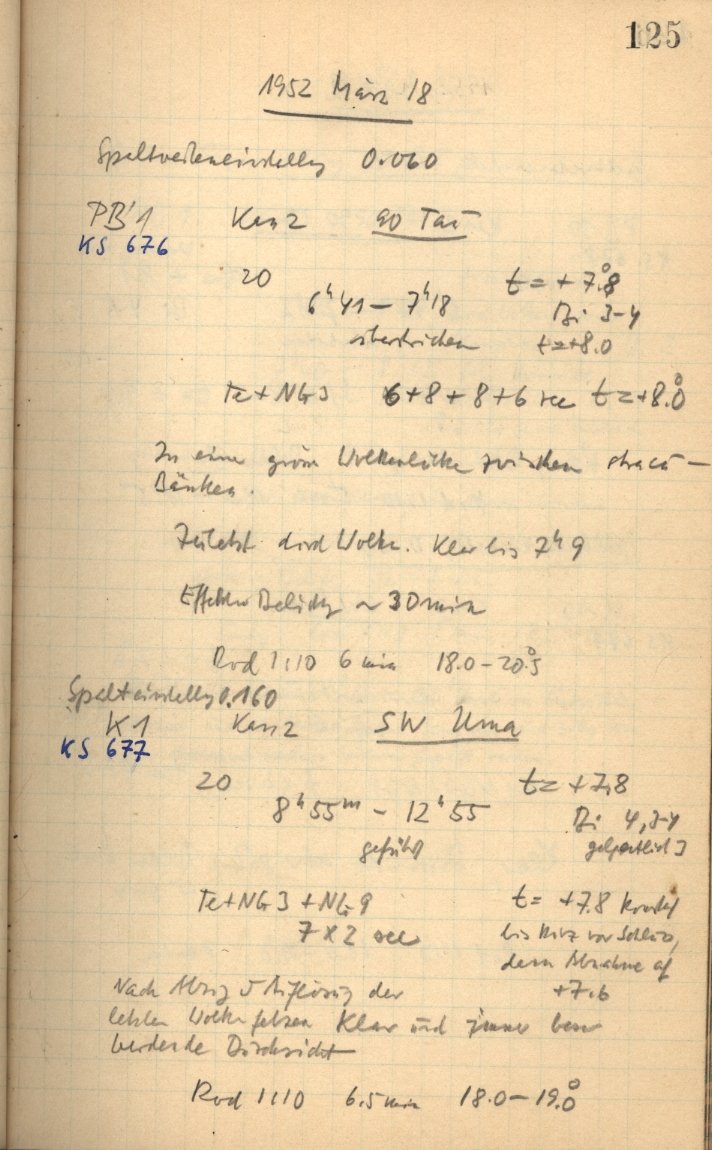 125
1952 März 18
Spaltweiteneinstellg 0.060
PB'1 Kass 2 90 Tau
KS 676
20 t = + 7.°8
6ʰ41 — 7ʰ18 Bi 3-4
t=+8.0
Fe+NG3 6+8+8+6 sec t=+8.°0
In eine große Wolkenlücke zwischen stracu-
Bänken.
Zuletzt Wolke. Klar bis 7ʰ9
Effektive Belichtg ~ 30 min
Rod 1:10 6 min 18.0-20.°5
Spalteinstellg 0.160
K1 Kass 2 SW Uma
KS 677
20 t= +7.8
8ʰ55ᵐ - 12ʰ55 Bi 4,3-4
geführt gelegentlich 3
Fe+NG3 + NG9 t= +7.8 konst
7x2 sec bis kurz vor Schluss,
dann Abnahme auf
Nach Abzug u Auflösung der +7.6
letzten Wolkenfetzen Klar und immer besser
werdende Durchsicht
Rod 1:10 6.5 min 18.0-19.°0